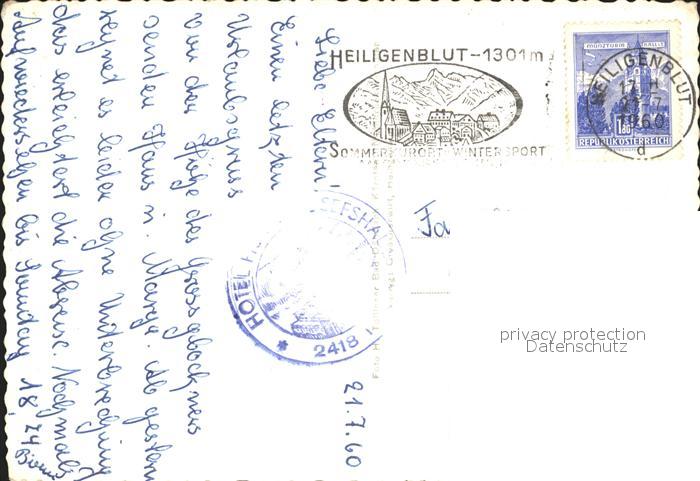 Liebe Eltern!
Einen letzten
Urlaubsgruss
von der Höhe des Grossglockners
senden Hans u. Margr. Ab gestern
regnet es leider ohne Unterbrechung
das erleichtert die Abreise. Nochmals
Aufwiedersehen bis Sonntag 18,24
21.7.60
HEILIGENBLUT-1301m
SOMMERKURORT WINTERSPORT
MÜNZTURM HALL I.T.
1.80
REPUBLIK ÖSTERREICH
HEILIGENBLUT
1960
d
HOTEL
SEFSHA
2418
Fa
privacy protection
Datenschutz